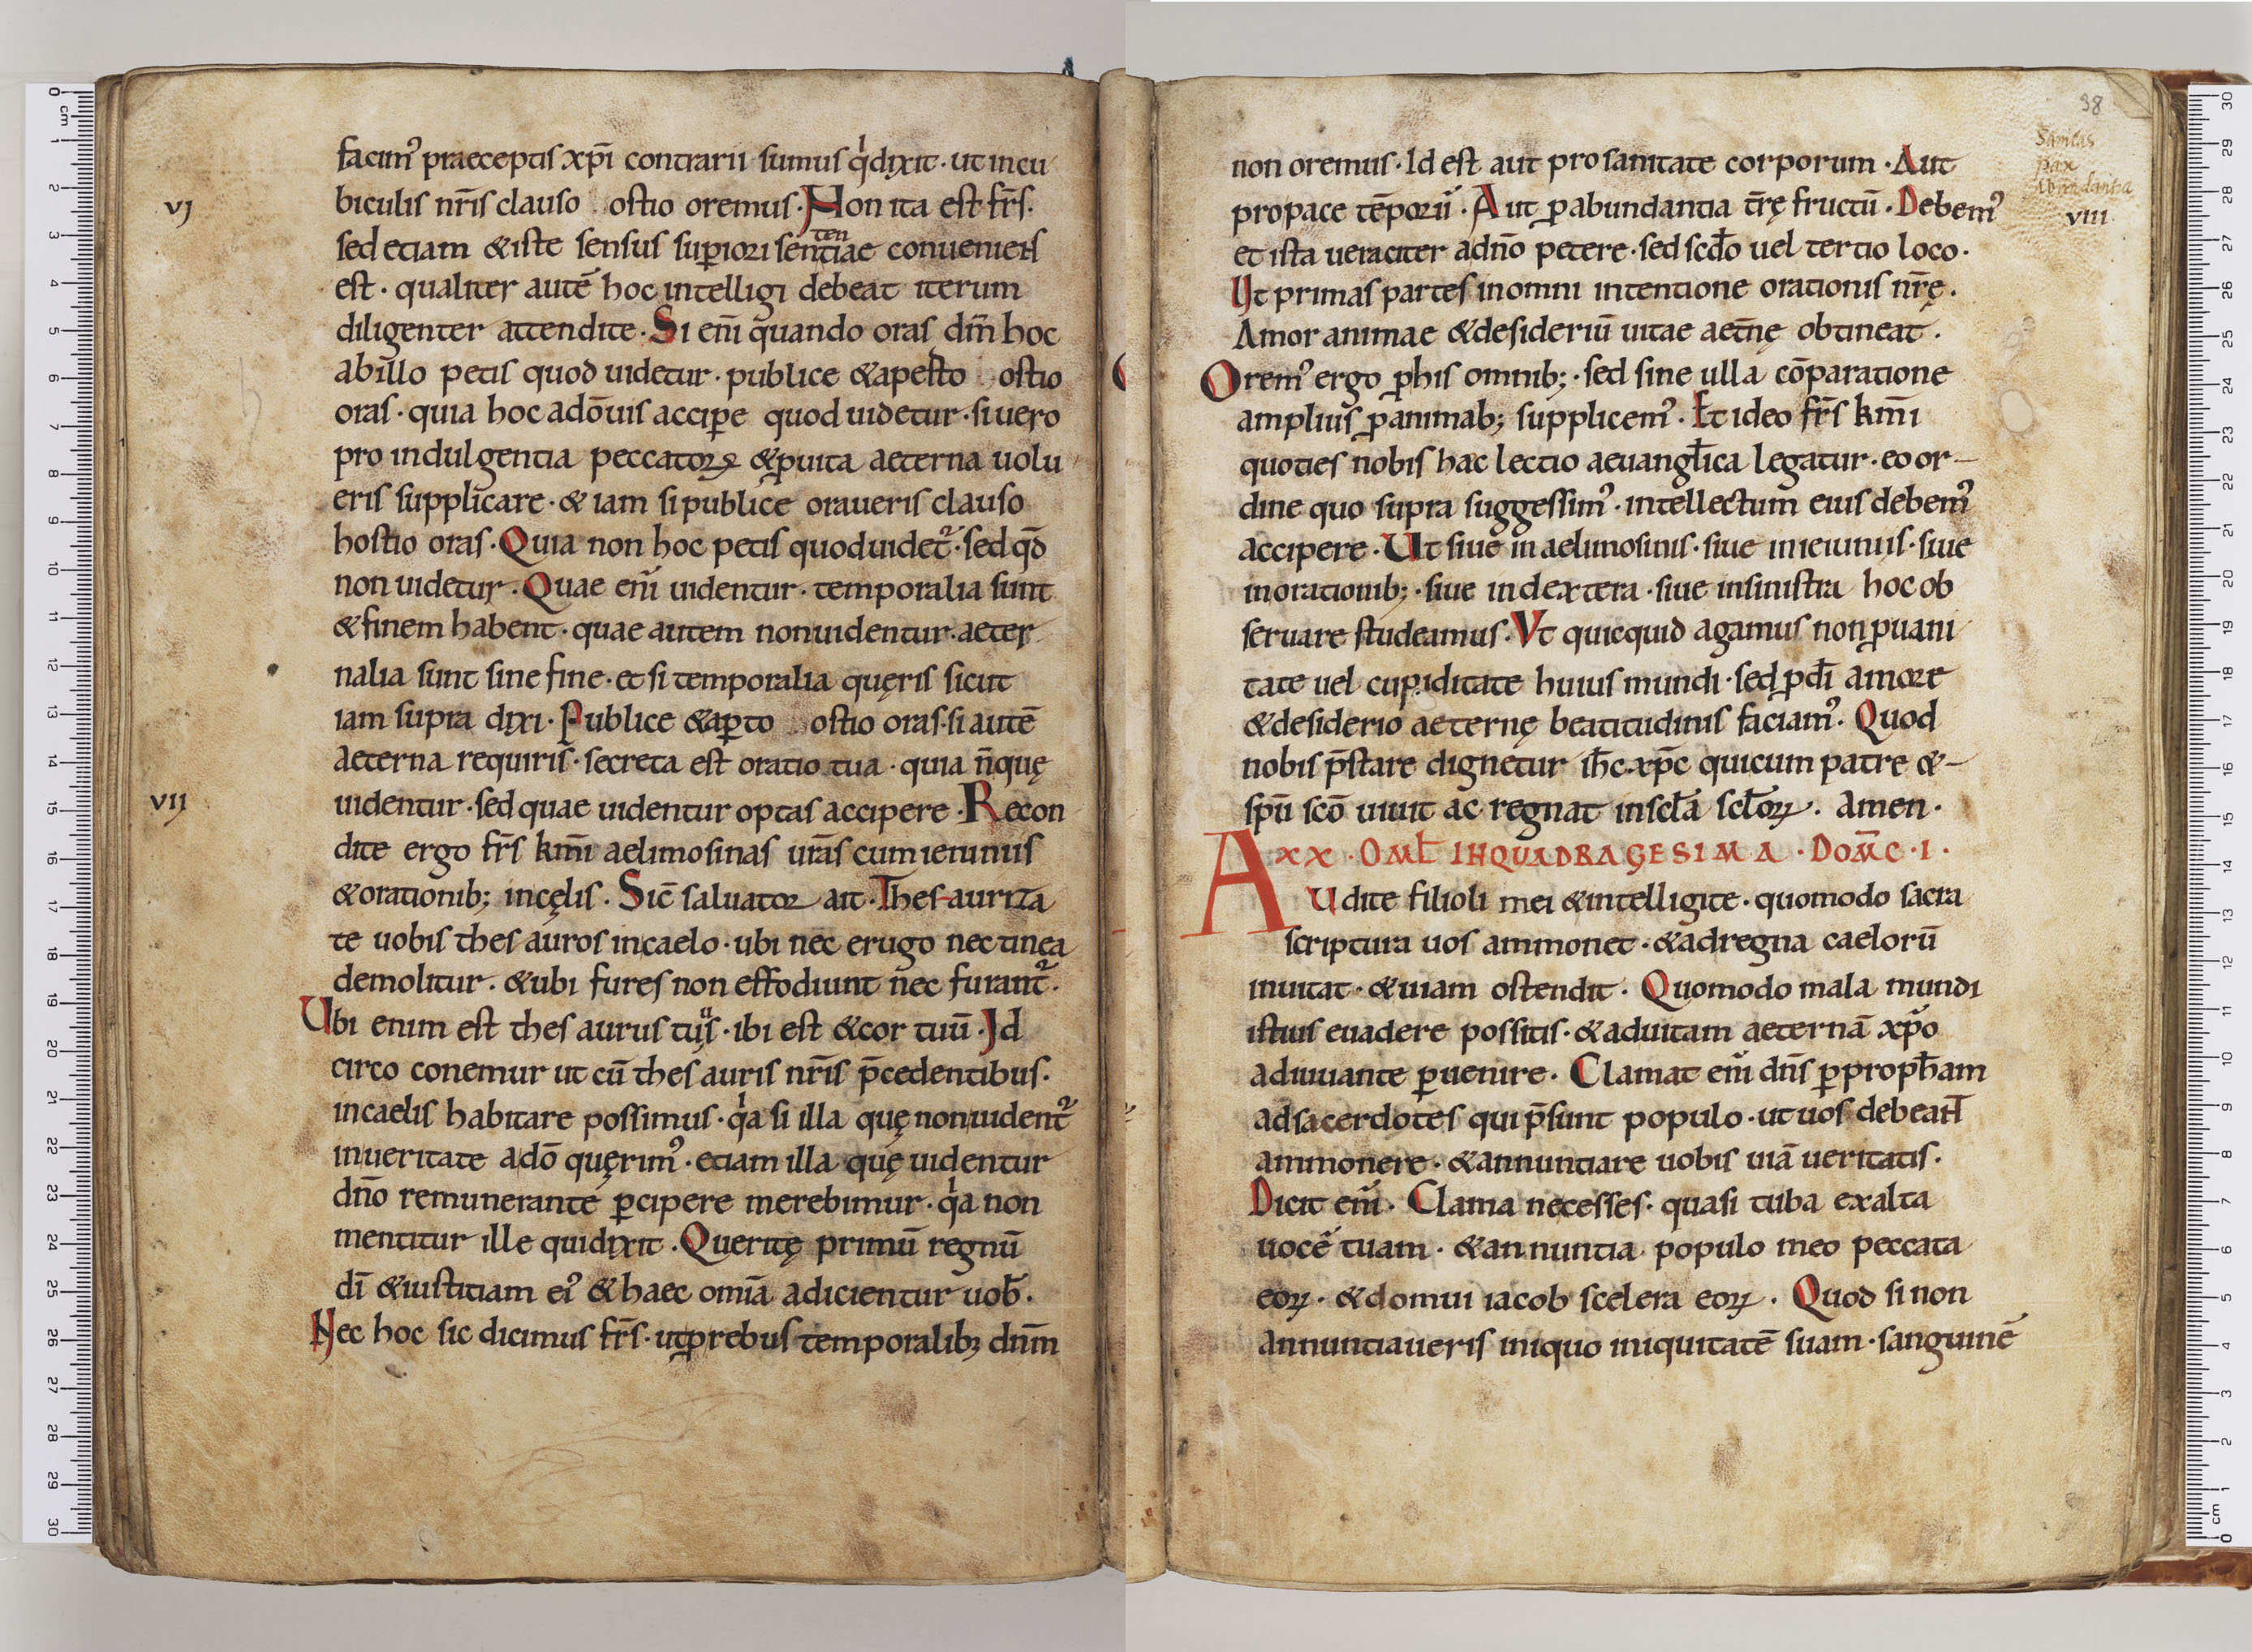 facim᾽ praeceptis xp̄i contrarii sumus q̍dixit · ut incu
biculis nr̄is clauso ostio oremus · Non ita est fr̄s ·
VI
sed etiam & iste sensus sup̱iori sentenciae conueniens
est · qualiter autē hoc intelligi debeat iterum
diligenter attendite · Si enī quando oras dm̄ hoc
ab illo petis quod uidetur · publice & aperto ostio
oras · quia hoc a dō uis accip̱e quod uidetur · si uero
pro indulgentia peccatoꝝ & ꝓ uita aeterna uolu
eris supplicare · & iam si publice oraueris clauso
hostio oras · Quia non hoc petis quod uidet᷑ · sed qd̄
non uidetur · Quae enī uidentur · temporalia sunt
& finem habent · quae autem non uidentur · aeter
nalia sunt sine fine · et si temporalia quęris sicut
iam supra dixi · Publice & aꝑto ostio oras · si autē
aeterna requiris · secreta est oratio tua · quia n̄ quę
uidentur · sed quae uidentur optas accipere · Recon
VII
dite ergo fr̄s km̄i aelimosinas ur̄as cum ieiuniis
& orationib; in cęlis · Sic̄ saluator ait · Thesauriza
te uobis thesauros in caelo · ubi nec erugo nec tinea
demolitur · & ubi fures non effodiunt nec furant᷑ ·
Ubi enim est thesaurus tuus · ibi est & cor tuū · Id
circo conemur ut cū thesauris nr̄is p̄cedentibus ·
in caelis habitare possimus · q̍a si illa quę non uident᷑
in ueritate a dō quęrim᾽ · etiam illa quę uidentur
dn̄o remunerante ꝑcipere merebimur · q̍a non
mentitur ille qui dixit · Queritę primū regnū
dī & iustitiam ei᾽ & haec omīa adicientur uob̄ ·
Nec hoc sic dicimus fr̄s · ut ꝓ rebus temporalibꝫ dnm̄
38
Sanitas
pax
Abundantia
non oremus · Id est aut pro sanitate corporum · Aut
pro pace tēporū · Aut ꝓ abundantia tr̄ę fructū · Debem᾽
VIII
et ista ueraciter a dn̄o petere · sed scd̄o uel tertio loco ·
Ut primas partes in omni intentione orationis nr̄ę ·
Amor animae & desideriū uitae aet̄nę obtineat ·
Orem᾽ ergo ꝓ his omnib; · sed sine ulla cōparatione
amplius ꝓ animab; supplicem᾽ · Et ideo fr̄s km̄i
quoties nobis hac lectio aeuangl̄ica legatur · eo or-
dine quo supra suggessim᾽ · intellectum eius debem᾽
accipere · Ut siue in aelimosinis · siue in ieiuniis · siue
in orationib; · siue in dextera · siue in sinistra hoc ob
seruare studeamus · Vt quicquid agamus non ꝓ uani
tate uel cupiditate huius mundi · sed ꝓ dī amore
& desiderio aeternę beatitudinis faciam᾽ · Quod
nobis p̄stare dignetur ih̄c xp̄c qui cum patre &-
sp̄u sc̄o uiuit ac regnat in scl̄a scl̄oꝝ · amen ·
XX · OML̄ IN QUADRAGESIMA · DOM̄C · I ·
AUdite filioli mei & intelligite · quomodo sacra
scriptura uos ammonet · & ad regna caelorū
inuitat · & uiam ostendit · Quomodo mala mundi
istius euadere possitis · & ad uitam aeternā xp̄o
adiuuante ꝑuenire · Clamat enī dn̄s ꝑ proph̄am
ad sacerdotes qui p̄sunt populo · ut uos debeant
ammonere · & annuntiare uobis uiā ueritatis ·
Dicit enī · Clama ne cesses · quasi tuba exalta
uocē tuam · & annuntia populo meo peccata
eoꝝ · & domui iacob scelera eoꝝ · Quod si non
annuntiaueris iniquo iniquitatē suam · sanguinē